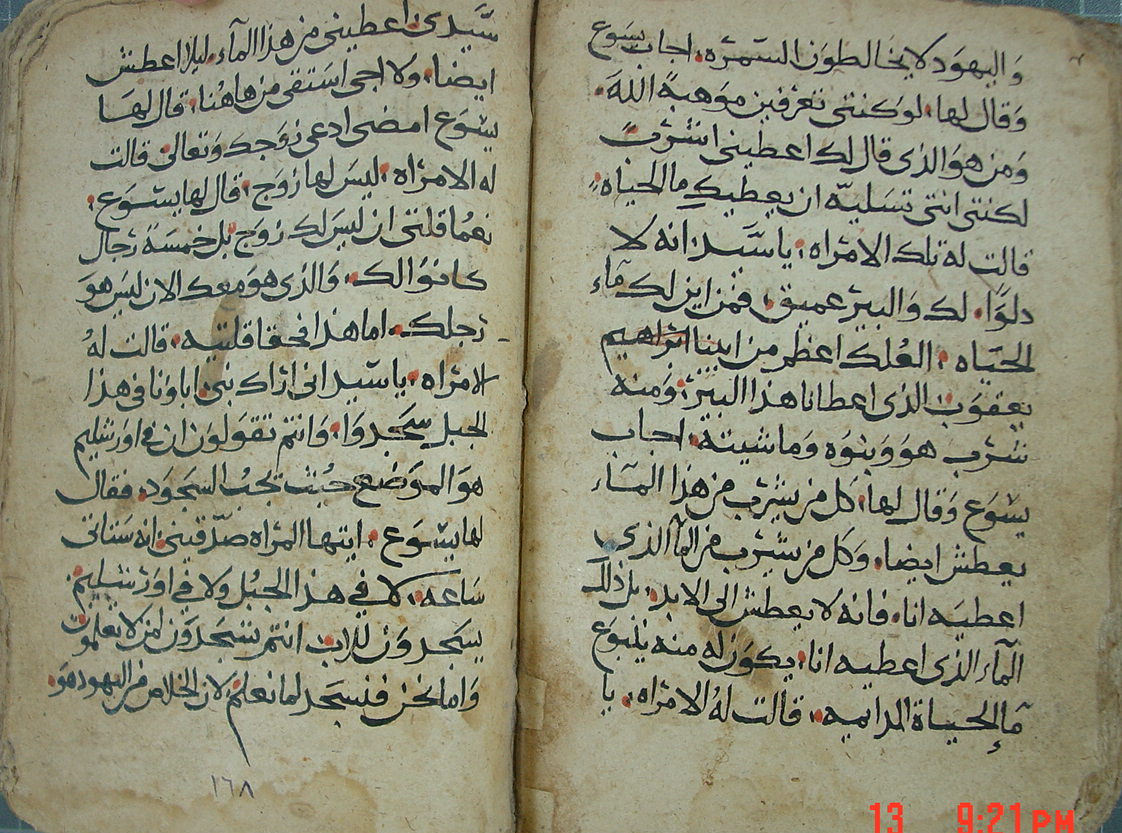 واليهود لا يخالطون السمره، اجاب يسوع
وقال لها، لو كنتي تعرفين موهبة الله،
ومن هو الذي قال لك اعطيني اشرب
لكنتي انتي تسليه ان يعطيك ما الحياه،
قالت له تلك الامراه، يا سيد انه لا
دلوًا، لك والبير عميق، فمن اين لك مآء
الحياه، العلك اعظم من ابينا ابراهيم
يعقوب الذي اعطانا هذا البير، ومنه
شرب هو وبنوه وماشيته، اجاب
يسوع وقال لها، كل من يشرب من هذا المآء
يعطش ايضا، وكل من يشرب من المآ الذي
اعطيه انا، فانه لا يعطش الى الابد، بل ذلك
المآء الذي اعطيه انا، يكون له منه ينبوع
مآ الحياة الدايميه، قالت له الامراه، يا
سيدي اعطيني من هذا المآء، ليلا اعطش
ايضا، ولا اجي استقي من هاهنا، قال لها
يسوع امضي ادعي زوجك وتعالي قالت
له الامراه، ليس لها زوج، قال لها يسوع،
نعما قلتي ان ليس لك زوج بل خمسة رجال
كانوا لك، والذي هو معك الان ليس هو
رجلك، اما هذا فحقا قلتيه، قالت له
الامراه، يا سيد اني اراك نبي، اباونا في هذا
الجبل سجدوا، وانتم تقولون ان في اورشليم
هو الموضع حيث يجب السجود، فقال
لها يسوع، ايتها المراه صدقيني انه ستاتي
ساعه، لا في هذا الجبل ولا في اورشليم
يسجدون للاب، انتم تسجدون لمن لا تعلمون
واما نحن فنسجد لما نعلم لان الخلاص من اليهود هو،
١٦٨
13 9:21 PM